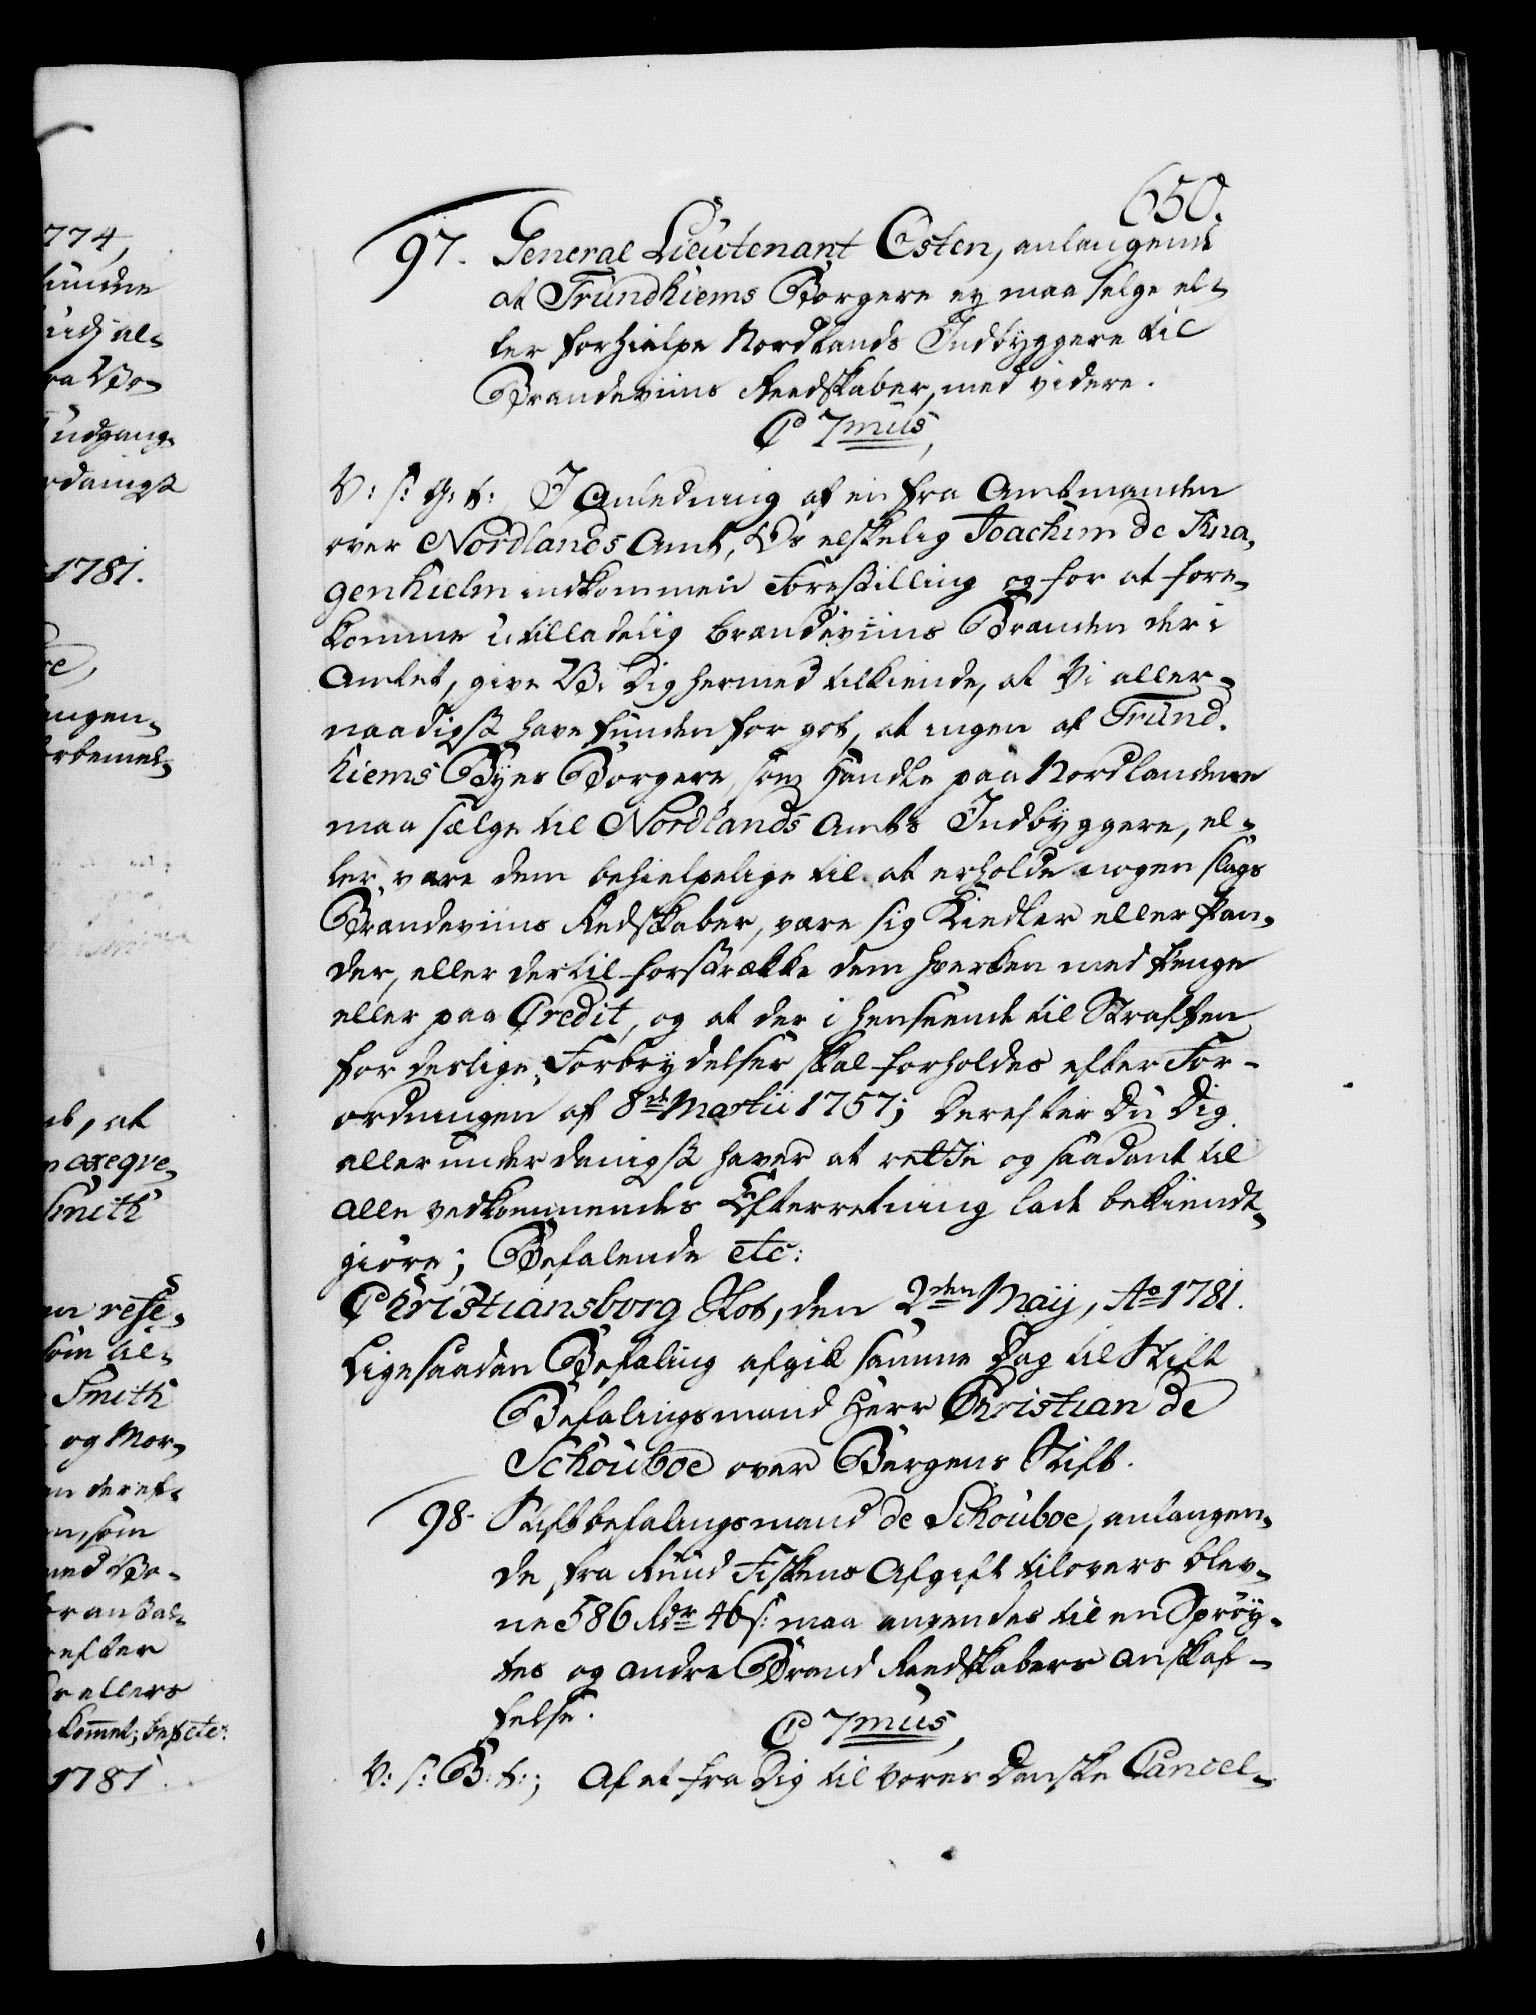 650.
97. General Lieutenant Osten, anlangende
at Trundhiems Borgere ey maa selge el-
ler forhielpe Nordlands Indbyggere til
Brandeviins Reedskaber, med videre.
C 7mus,
V: s: G: t: I Anledning af en fra Amtmanden
over Nordlands Amt, Os elskelig Joachim de Kna-
genhielm indkommen Forestilling og for at fore-
komme utilladelig brændeviins Branden der i
Amtet, give Vi Dig hermed tilkiende, at Vi aller-
naadigst have funden for got, at ingen af Trund-
hiems Byes Borgere som handle paa Nordlandene
maa selge til Nordlands Amts Indbyggere, el-
ler være dem behielpelige til at erholde nogen slags
Brandeviins Redskaber, være sig Kiedler eller Pan-
der, eller dertil forstrække dem hverken med Penge
eller paa Credit, og at der i henseende til Straffen
for deslige Forbrydelser skal forholdes efter For-
ordningen af 8de Martii 1757; Derefter Du Dig
allerunderdanigst haver at rette og saadant til
alle vedkommendes Efterretning lade bekiendt-
giøre; Befalende etc:
Christiansborg Slot, den 2den Maij, Ao 1781.
Ligesaadan Befaling afgik samme Dag til Stift
Befalingsmand Herr Christian de
Schouboe over Bergens Stift.
98. Stiftbefalingsmand de Schouboe, anlangen-
de fra Ruud Fiskens Afgift tilovers blev-
ne 586 Rdr 46 s: maa anvendes til en Sprøy-
tes og andre Brand Reedskabers Anskaf-
felse.
C 7mus,
V: s: B: t:; Af et fra Dig til vores Danske Cancel-
774,
ra Bo-
udgang-
rdanigst
1781.
re,
angen-
at
exeqve-
Smith
rese-
som til-
Smith
og Mor-
deref-
som
efter
ellers
1781.